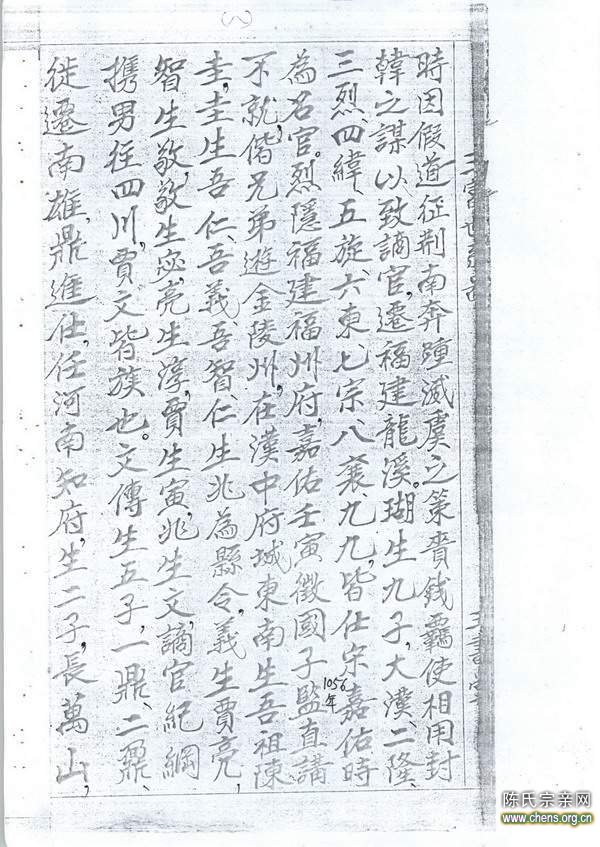 時因假道征荆南奔踵滅虞之策賚錢覊使相用封
韓之謀以致謫官,遷福建龍溪。瑚生九子,大漢、二隆、
三烈、四緯、五旋、六東、七宗、八襄、九九,皆仕宗嘉佑時
為名官。烈隱福建福州府,嘉佑壬寅徵國子監直講
1056年
不就,偕兄弟遊金陵州,在漢中府城東南生吾祖陳
圭,圭生吾仁、吾義、吾智、仁生兆為縣令,義生賈亮,
智生敬,敬生宓,亮生淳,賈生寅,兆生文,謫官紀綱
携男往四川,賈文皆族也。文傳生五子,一鼎、二鼐、
徙遷南雄,鼎進仕,任河南知府,生二子,長萬山,
陈氏宗亲网
www.chens.org.cn